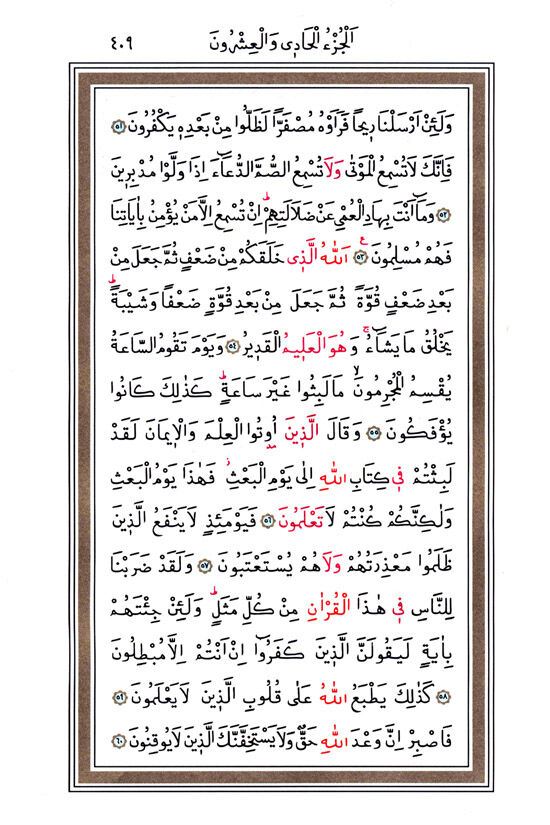 اَلْجُزْءُ الْحَادِي وَالْعِشْرُونَ ٤٠٩
وَلَئِنْ اَرْسَلْنَا رِيحًا فَرَاَوْهُ مُصْفَرًّا لَظَلُّوا مِنْ بَعْدِهِ يَكْفُرُونَ ﴿٥١﴾
فَاِنَّكَ لَا تُسْمِعُ الْمَوْتٰى وَلَا تُسْمِعُ الصُّمَّ الدُّعَٓاءَ اِذَا وَلَّوْا مُدْبِرِينَ
﴿٥٢﴾ وَمَٓا اَنْتَ بِهَادِ الْعُمْيِ عَنْ ضَلَالَتِهِمْۜ اِنْ تُسْمِعُ اِلَّا مَنْ يُؤْمِنُ بِاٰيَاتِنَا
فَهُمْ مُسْلِمُونَ ﴿٥٣﴾ اَللّٰهُ الَّذِي خَلَقَكُمْ مِنْ ضَعْفٍ ثُمَّ جَعَلَ مِنْ
بَعْدِ ضَعْفٍ قُوَّةً ثُمَّ جَعَلَ مِنْ بَعْدِ قُوَّةٍ ضَعْفًا وَشَيْبَةًۜ
يَخْلُقُ مَا يَشَٓاءُۚ وَهُوَ الْعَلِيمُ الْقَدِيرُ ﴿٥٤﴾ وَيَوْمَ تَقُومُ السَّاعَةُ
يُقْسِمُ الْمُجْرِمُونَۙ مَا لَبِثُوا غَيْرَ سَاعَةٍۜ كَذٰلِكَ كَانُوا
يُؤْفَكُونَ ﴿٥٥﴾ وَقَالَ الَّذِينَ اُوتُوا الْعِلْمَ وَالْاِيمَانَ لَقَدْ
لَبِثْتُمْ فِي كِتَابِ اللّٰهِ اِلٰى يَوْمِ الْبَعْثِۘ فَهٰذَا يَوْمُ الْبَعْثِ
وَلٰكِنَّكُمْ كُنْتُمْ لَا تَعْلَمُونَ ﴿٥٦﴾ فَيَوْمَئِذٍ لَا يَنْفَعُ الَّذِينَ
ظَلَمُوا مَعْذِرَتُهُمْ وَلَا هُمْ يُسْتَعْتَبُونَ ﴿٥٧﴾ وَلَقَدْ ضَرَبْنَا
لِلنَّاسِ فِي هٰذَا الْقُرْاٰنِ مِنْ كُلِّ مَثَلٍۜ وَلَئِنْ جِئْتَهُمْ
بِاٰيَةٍ لَيَقُولَنَّ الَّذِينَ كَفَرُٓوا اِنْ اَنْتُمْ اِلَّا مُبْطِلُونَ
﴿٥٨﴾ كَذٰلِكَ يَطْبَعُ اللّٰهُ عَلٰى قُلُوبِ الَّذِينَ لَا يَعْلَمُونَ ﴿٥٩﴾
فَاصْبِرْ اِنَّ وَعْدَ اللّٰهِ حَقٌّ وَلَا يَسْتَخِفَّنَّكَ الَّذِينَ لَا يُوقِنُونَ ﴿٦٠﴾